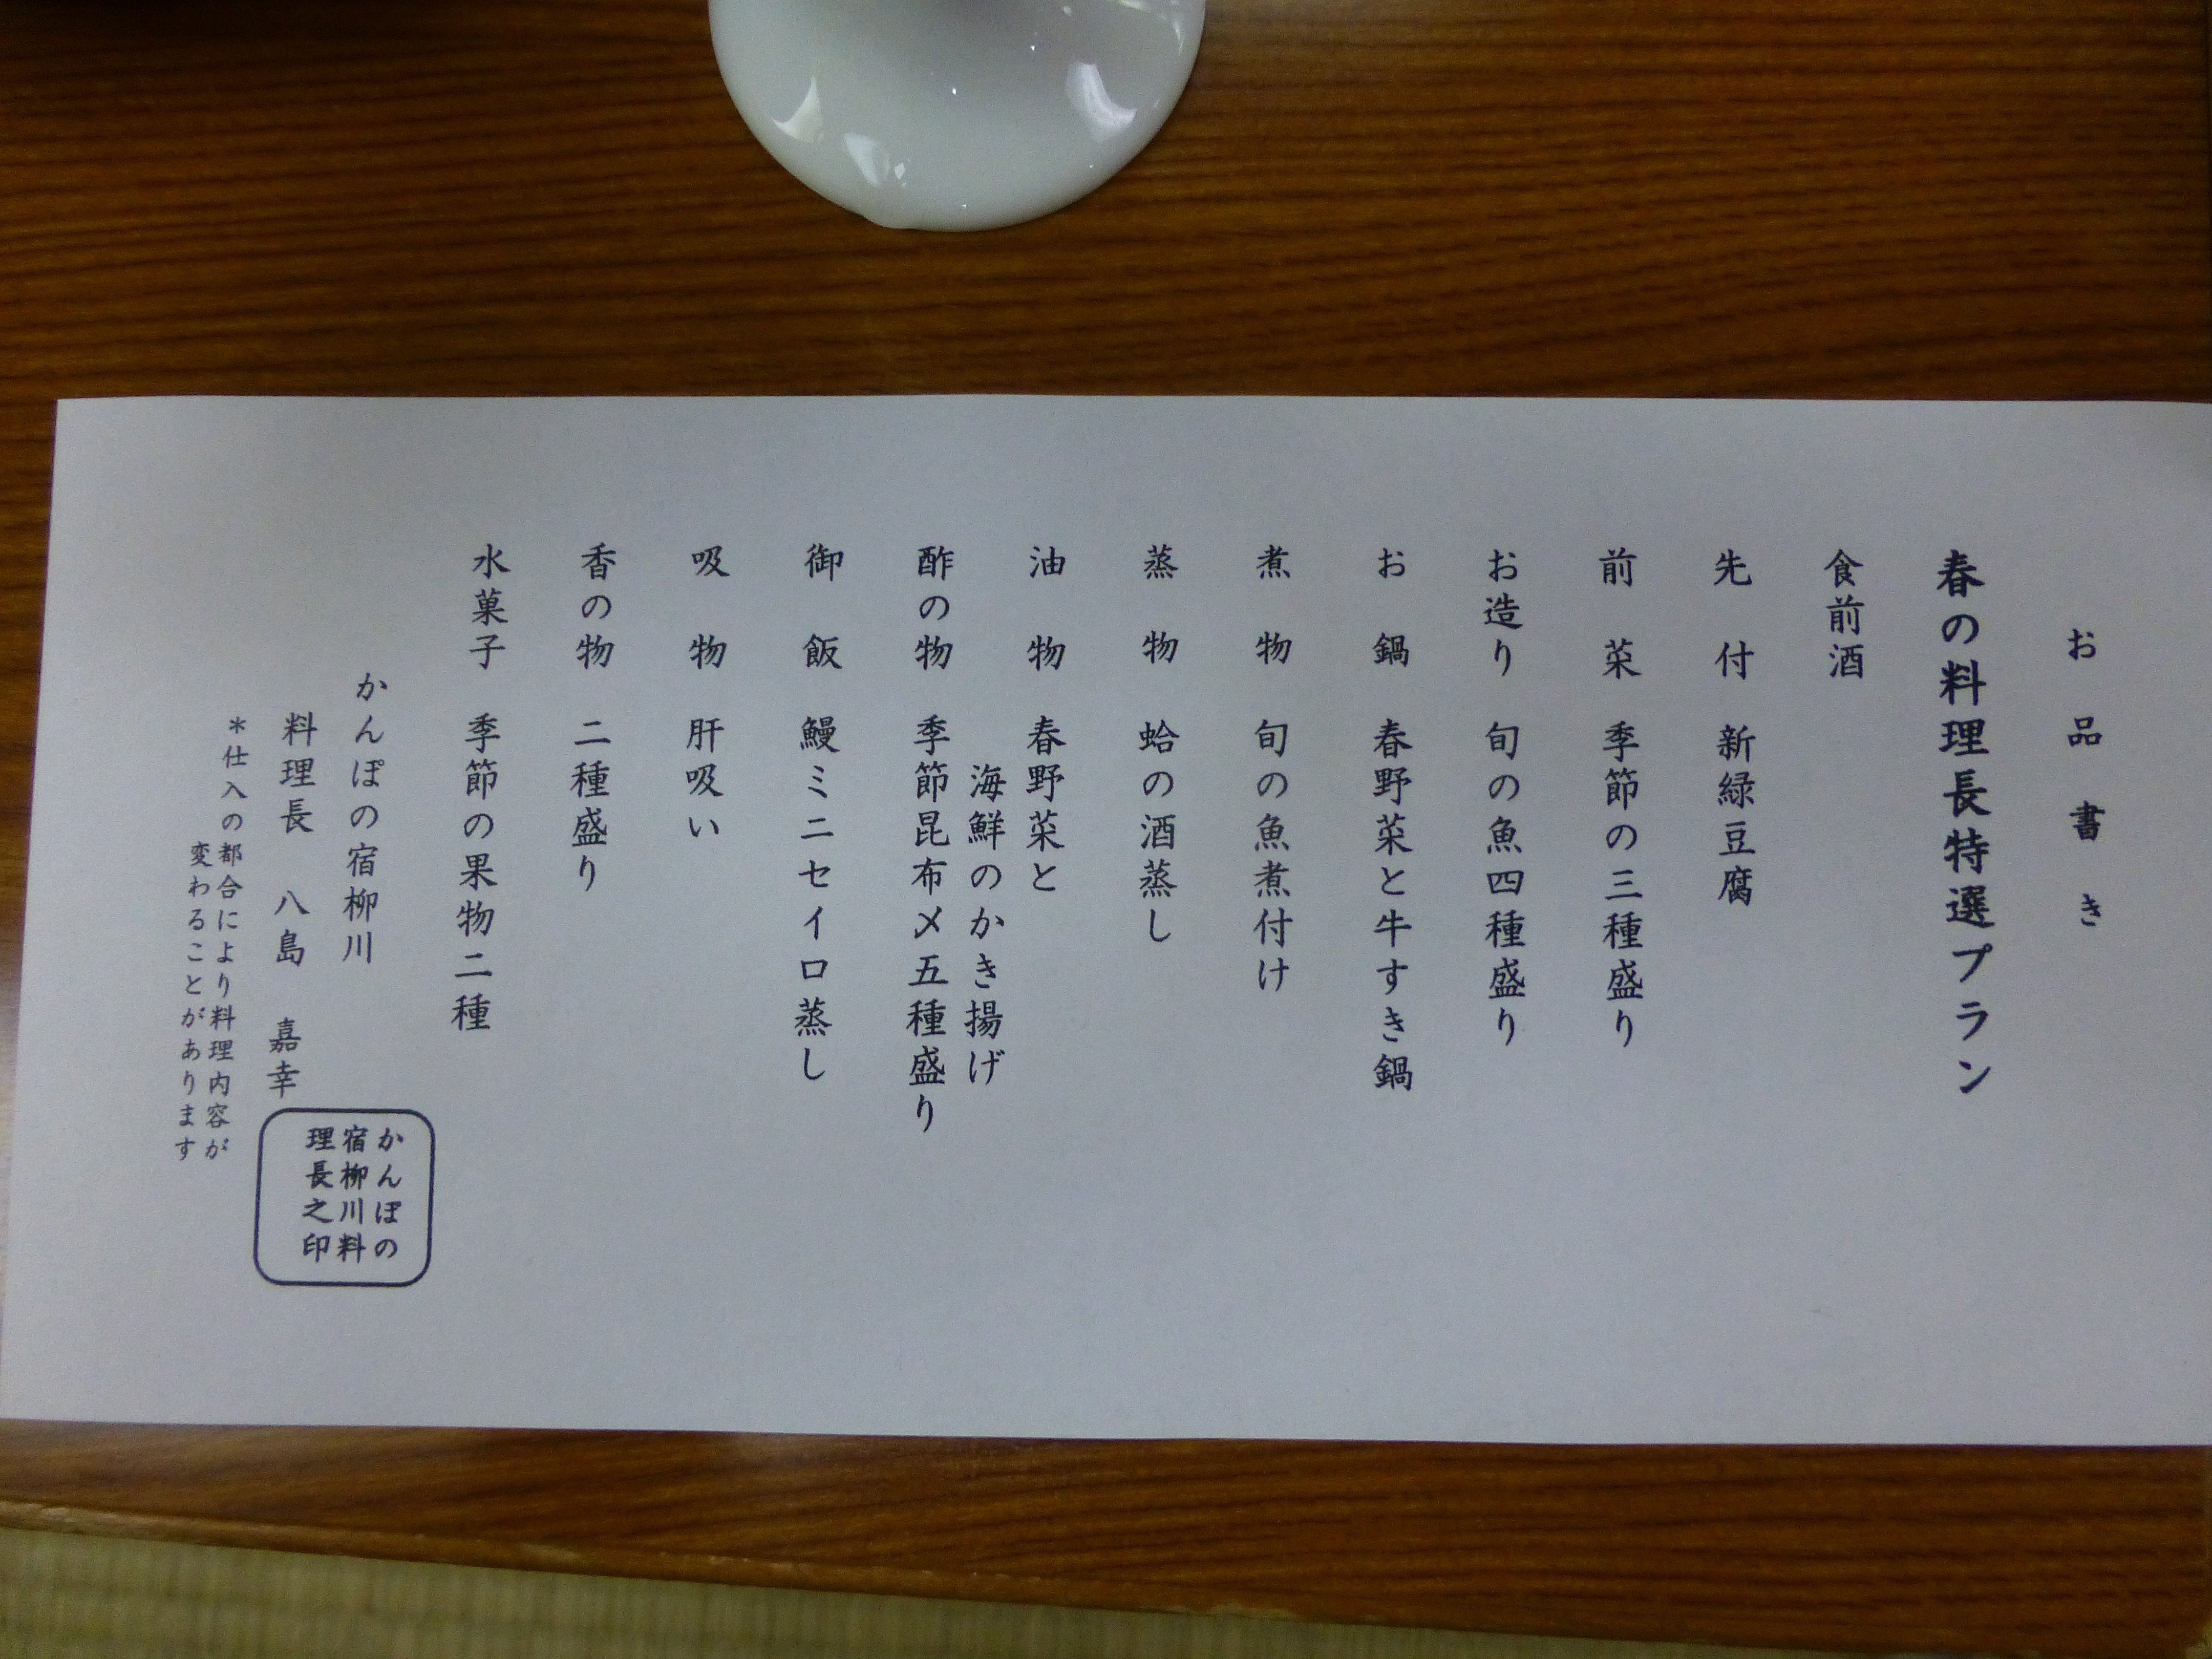 お品書き
春の料理長特選プラン
食前酒
先 付 新緑豆腐
前 菜 季節の三種盛り
お造り 旬の魚四種盛り
お 鍋 春野菜と牛すき鍋
煮 物 旬の魚煮付け
蒸 物 蛤の酒蒸し
油 物 春野菜と
海鮮のかき揚げ
酢の物 季節昆布〆五種盛り
御 飯 鰻ミニセイロ蒸し
吸 物 肝吸い
香の物 二種盛り
水菓子 季節の果物二種
かんぽの宿柳川
料理長 八島 嘉幸
かんぽの
宿柳川料
理長之印
＊仕入の都合により料理内容が
変わることがあります